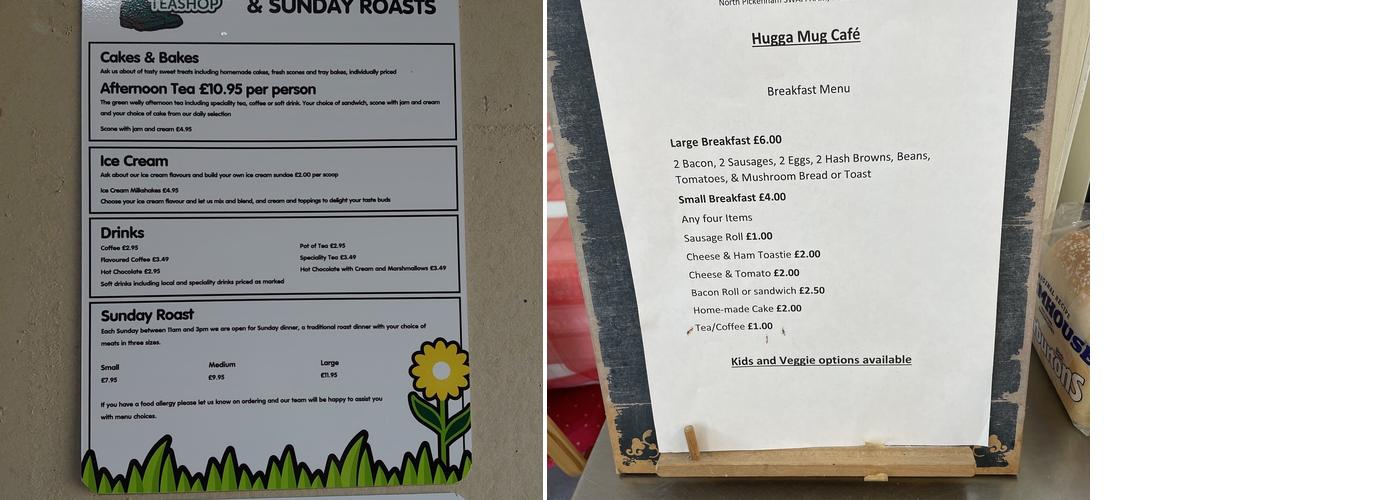 TEASHOP
& SUNDAY ROASTS
Cakes & Bakes
Ask us about of tasty sweet treats including homemade cakes, fresh scones and tray bakes, individually priced
Afternoon Tea £10.95 per person
The green welly afternoon tea including speciality tea, coffee or soft drink. Your choice of sandwich, scone with jam and cream
and your choice of cake from our daily selection
Scone with jam and cream £4.95
Ice Cream
Ask about our ice cream flavours and build your own ice cream sundae £2.00 per scoop
Ice Cream Milkshakes £4.95
Choose your ice cream flavour and let us mix and blend, and cream and toppings to delight your taste buds
Drinks
Coffee £2.95
Flavoured Coffee £3.49
Hot Chocolate £2.95
Soft drinks including local and speciality drinks priced as marked
Pot of Tea £2.95
Speciality Tea £3.49
Hot Chocolate with Cream and Marshmallows £3.49
Sunday Roast
Each Sunday between 11am and 3pm we are open for Sunday dinner, a traditional roast dinner with your choice of
meats in three sizes.
Small
£7.95
Medium
£9.95
Large
£11.95
If you have a food allergy please let us know on ordering and our team will be happy to assist you
with menu choices.
North Pickenham
Hugga Mug Café
Breakfast Menu
Large Breakfast £6.00
2 Bacon, 2 Sausages, 2 Eggs, 2 Hash Browns, Beans,
Tomatoes, & Mushroom Bread or Toast
Small Breakfast £4.00
Any four Items
Sausage Roll £1.00
Cheese & Ham Toastie £2.00
Cheese & Tomato £2.00
Bacon Roll or sandwich £2.50
Home-made Cake £2.00
Tea/Coffee £1.00
Kids and Veggie options available